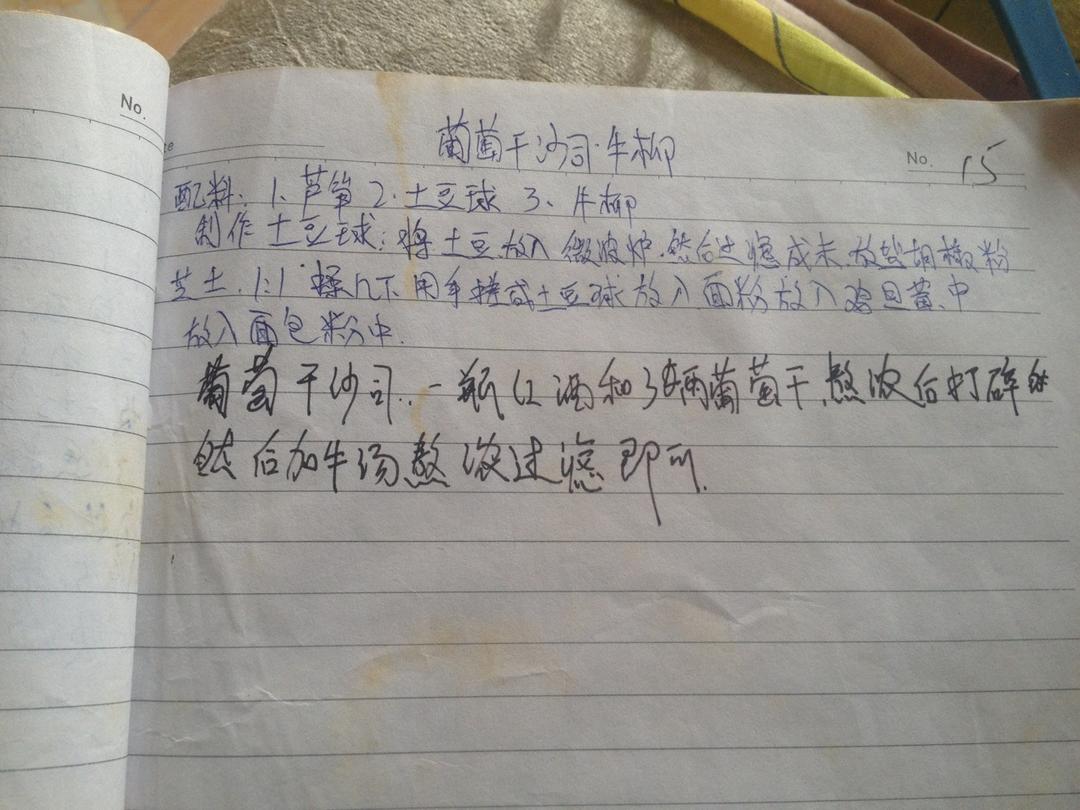 No.
葡萄干沙司·牛柳
No. 15
配料：1、芦笋 2·土豆球 3、牛柳
制作土豆球：将土豆放入微波炉.然后过滤成末.放盐胡椒粉
芝士.1:1 揉几下用手搓成土豆球放入面粉放入鸡旦黄中
放入面包粉中.
葡萄干沙司..一瓶红酒和3两葡萄干.熬浓后打碎
然后加牛汤熬浓过滤即可.